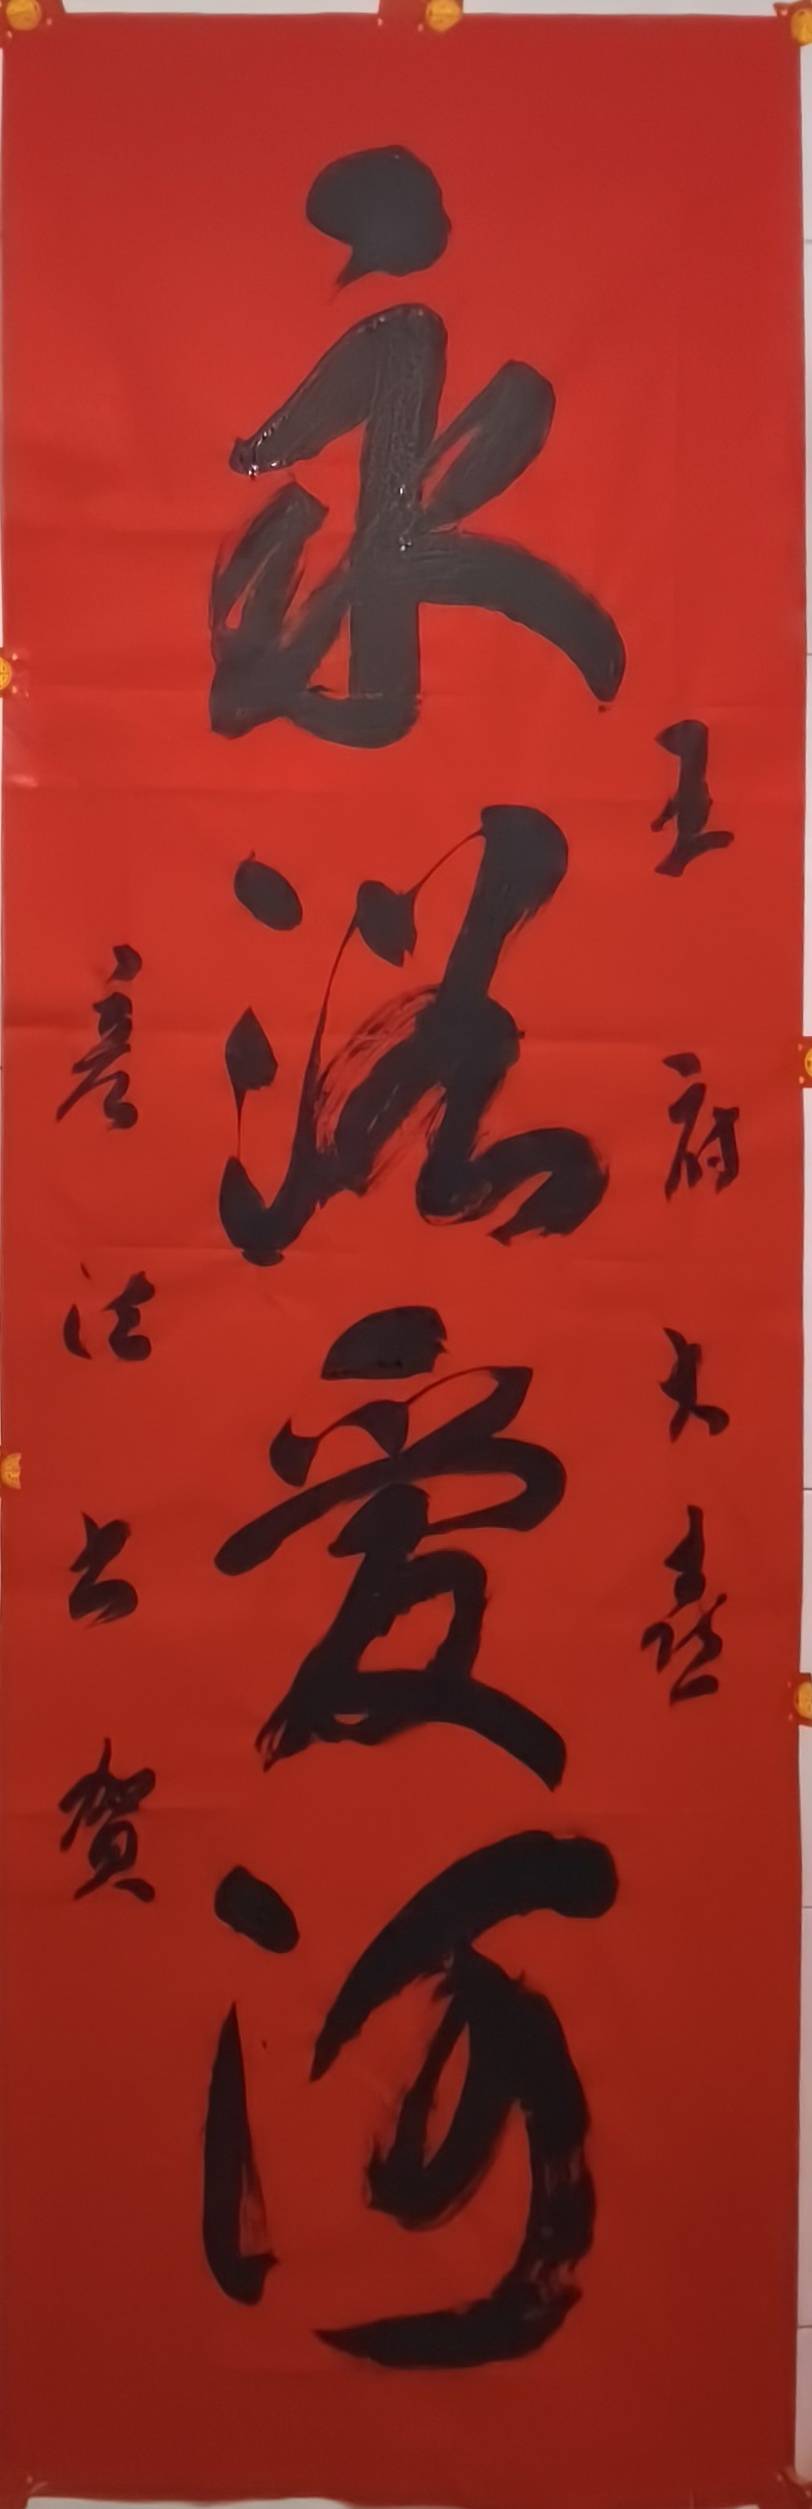 王府大喜
永浴爱河
彦法书賀